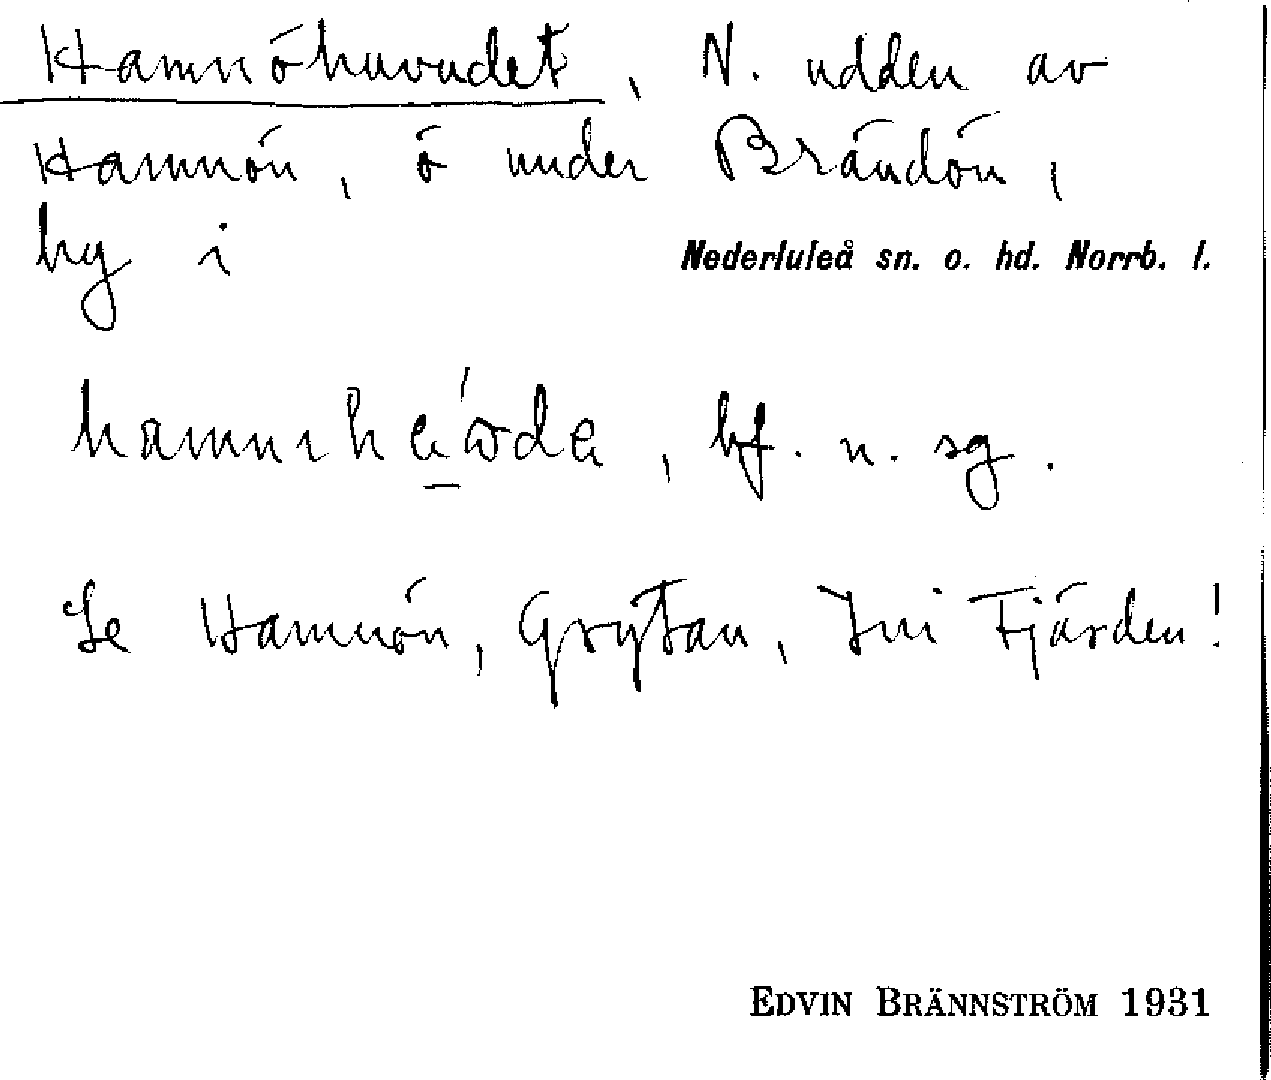 Hamnöhuvudet, N. udden av
Hamnön, ö under Brändön,
by i Nederluleå sn. o. hd. Norrb. l.
bf. n. sg.
Se Hamnön, Grytan, Inri Fjärden!
EDVIN BRÄNNSTRÖM 1931